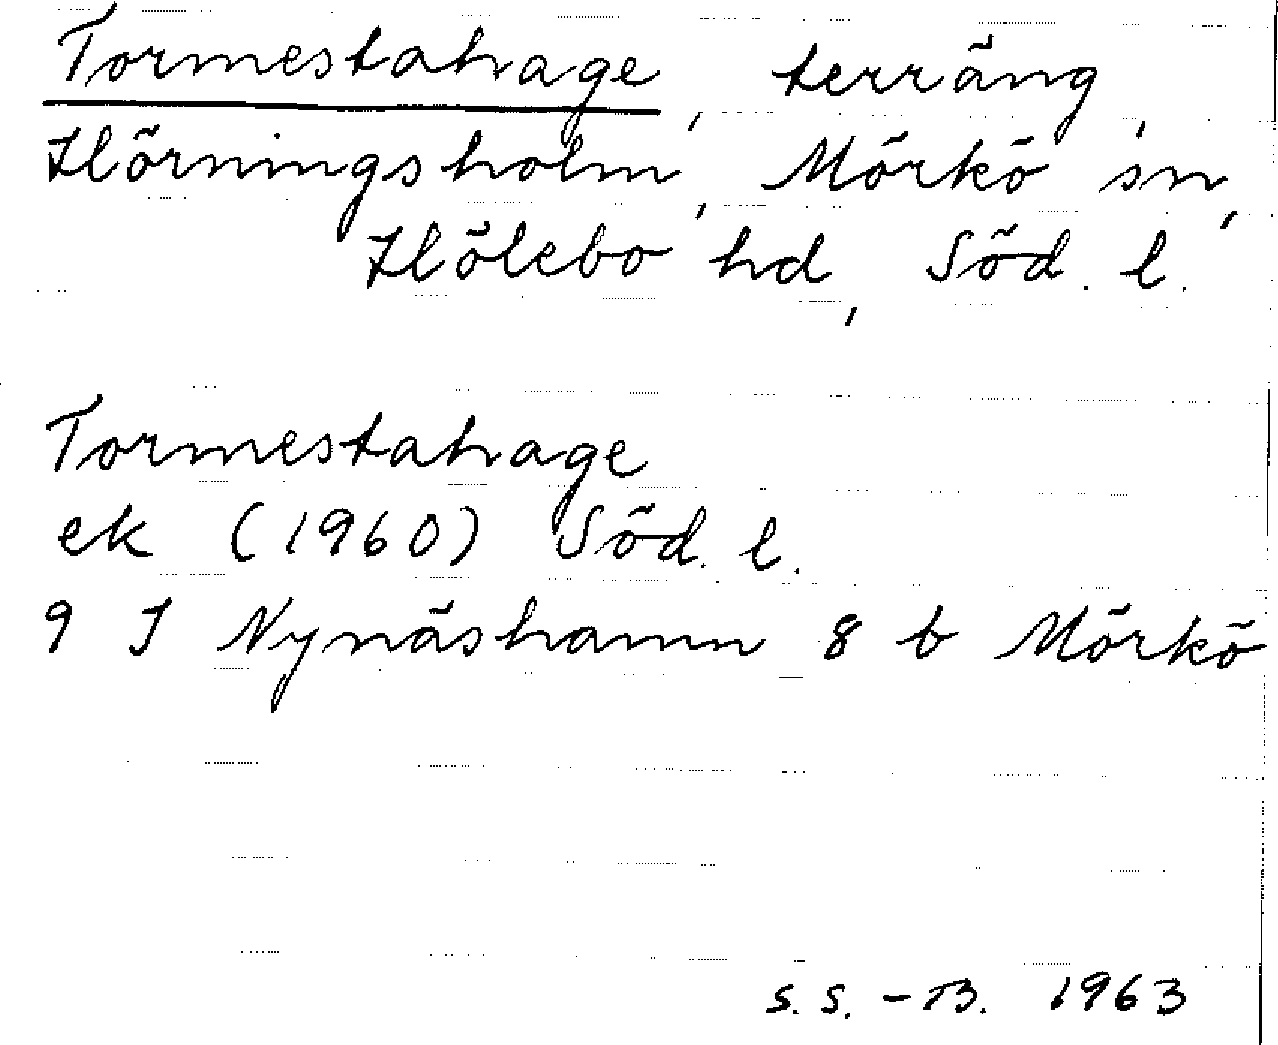 Tormestahage, terräng,
Hörningsholm, Mörkö sn,
Hölebo hd, Söd. l.
Tormestahage
ek (1960) Söd. l.
9 I Nynäshamn 8 b Mörkö
S. S. - B. 1963